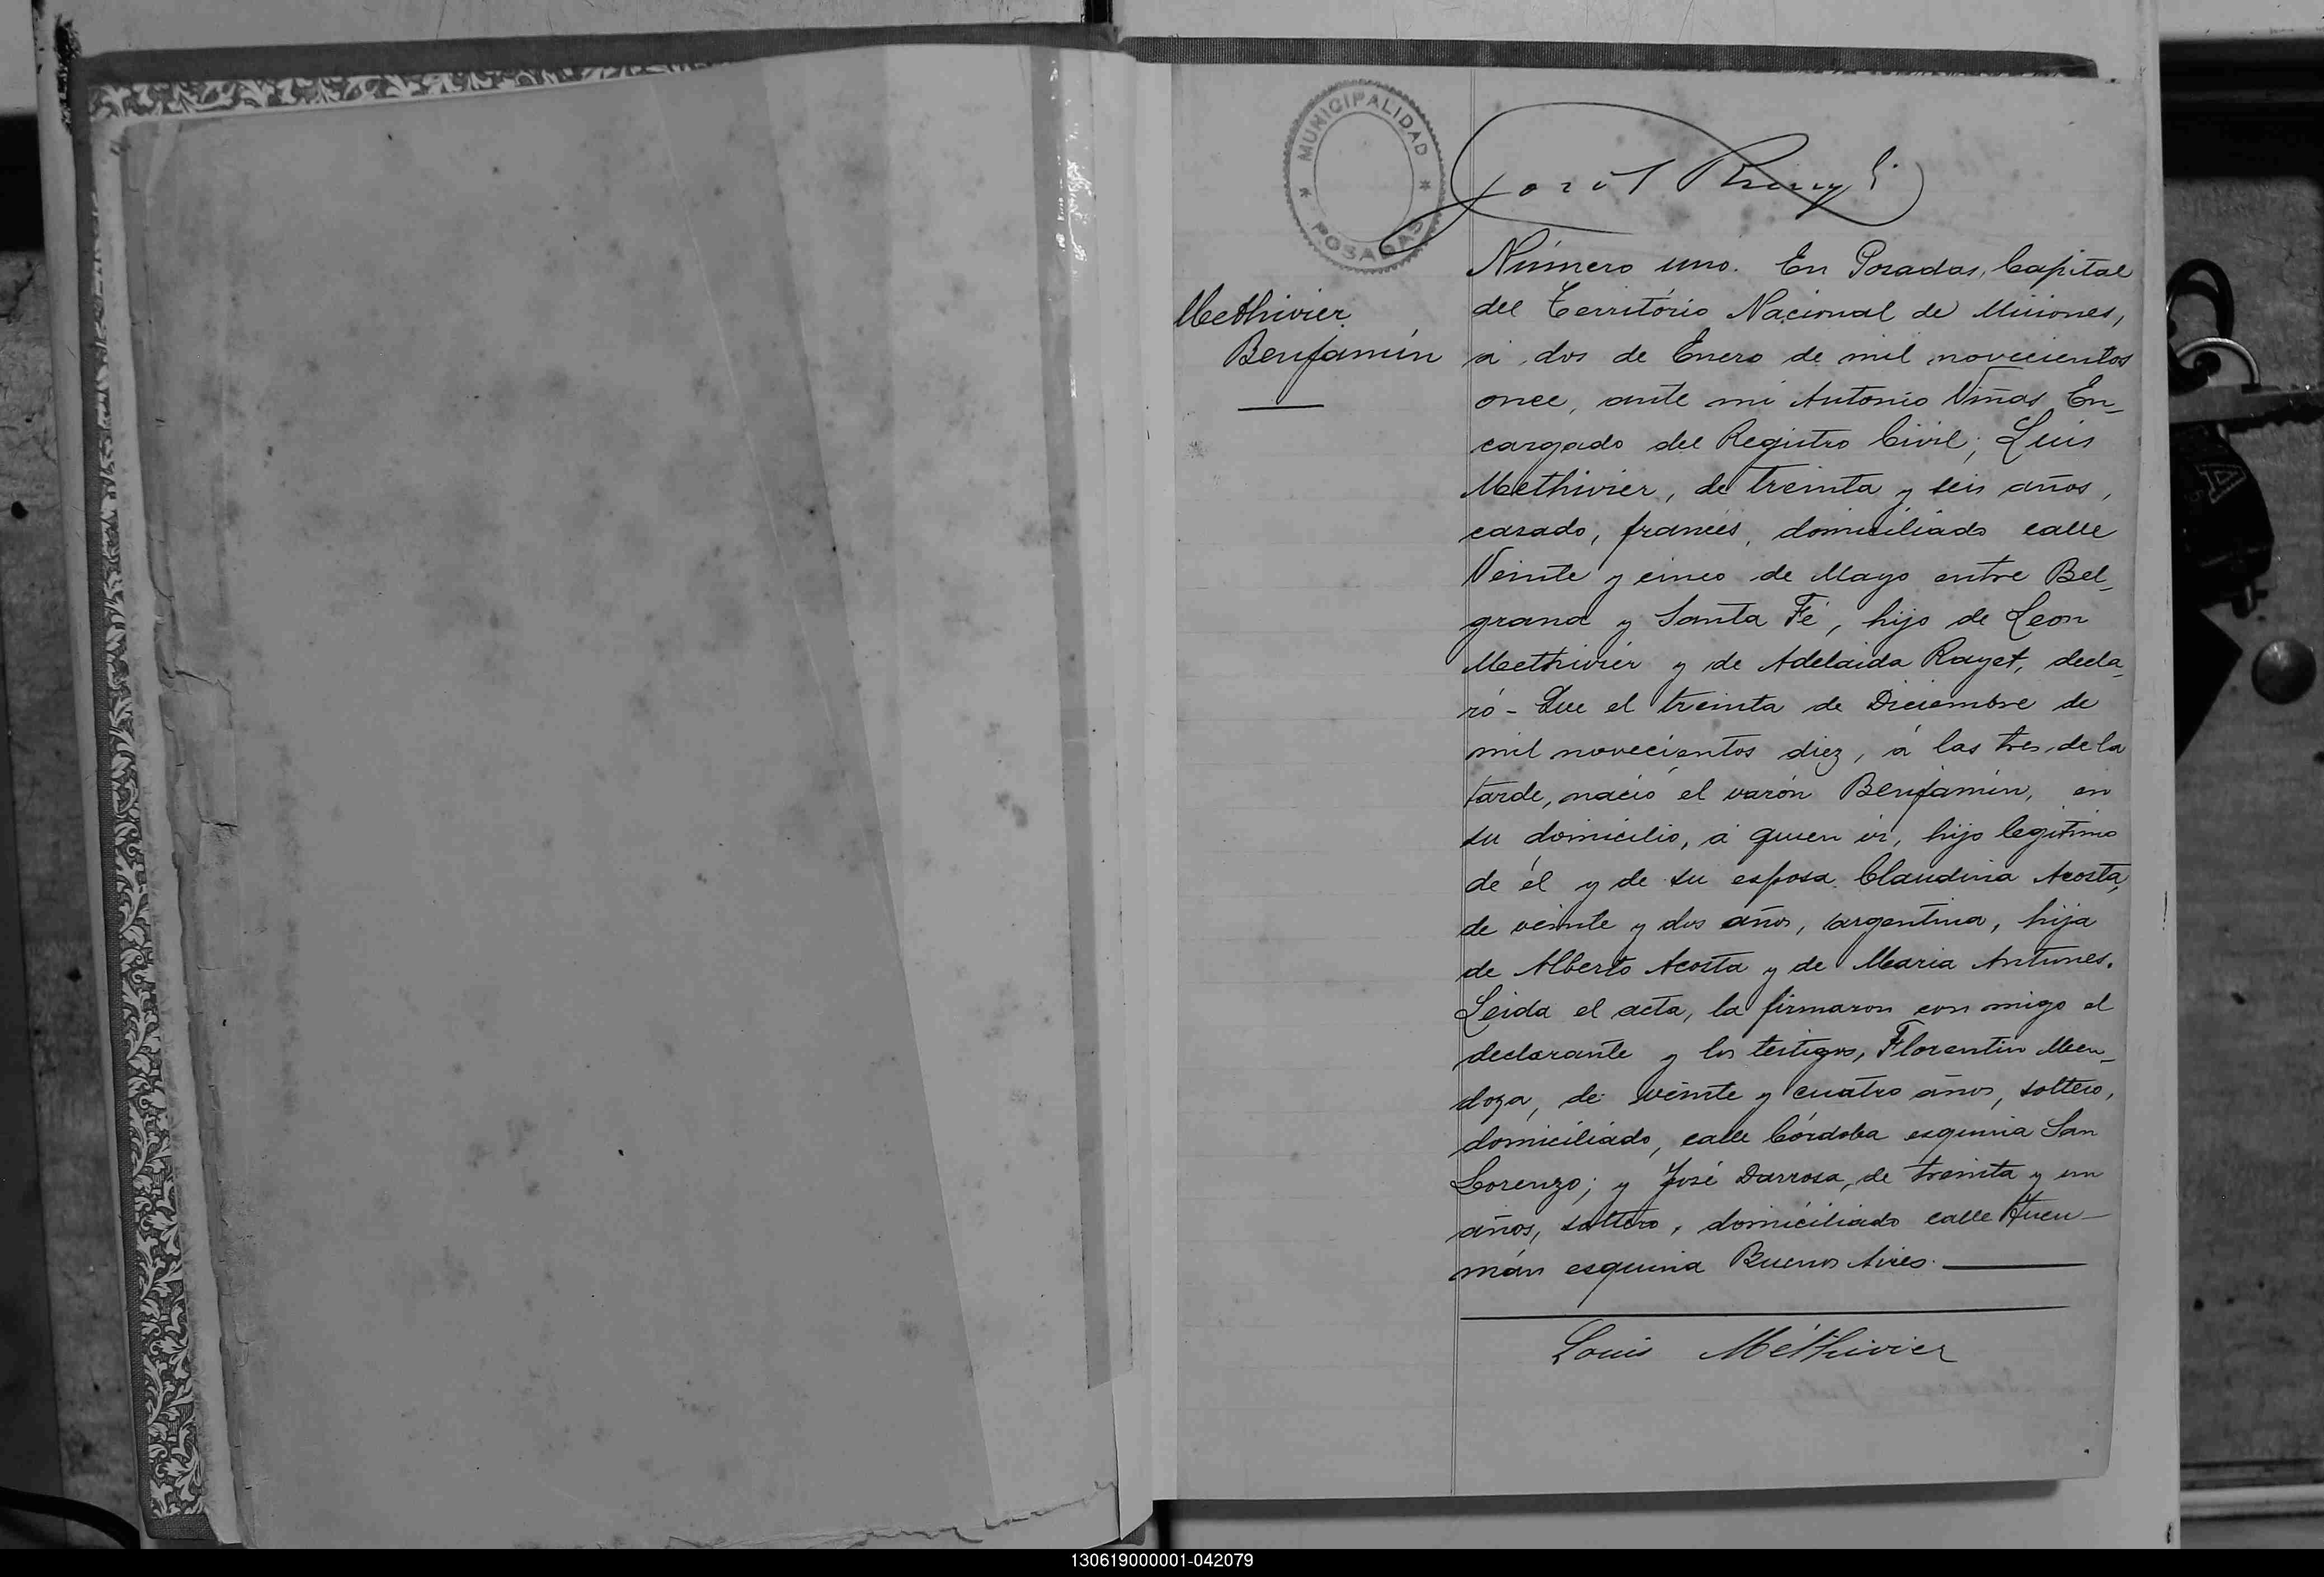 MUNICIPALIDAD
* *
POSADAS
Número uno. En Posadas, Capital
Methivier
Benjamín
del Território Nacional de Misiones,
á dos de Enero de mil novecientos
once, ante mi Antonio Viñas En-
cargado del Registro Civil; Luis
Methivier, de treinta y seis años,
casado, francés, domiciliado calle
Veinte y cinco de Mayo entre Bel-
grano y Santa Fé, hijo de Leon
Methivier y de Adelaida Rayet, decla-
ró - Que el treinta de Diciembre de
mil novecientos diez, á las tres de la
tarde, nació el varón Benjamín, en
su domicilio, á quien ví, hijo legitimo
de él y de su esposa Claudina Acosta,
de veinte y dos años, argentina, hija
de Alberto Acosta y de Maria Antunes.
Leida el acta, la firmaron con migo el
declarante y los testigos, Florentin Men-
doza, de veinte y cuatro años, soltero,
domiciliado, calle Córdoba esquina San
Lorenzo; y José Darrosa, de treinta y un
años, soltero, domiciliado calle Tucu-
mán esquina Buenos Aires.
Louis Méthivier
130619000001-042079